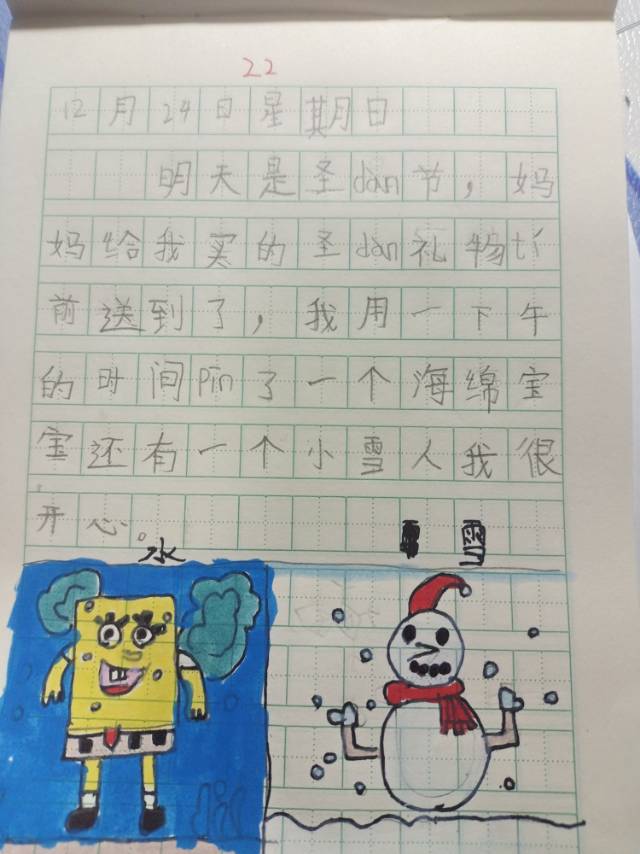 22
12月24日星期日
明天是圣dàn节，妈
妈给我买的圣dàn礼物tí
前送到了，我用一下午
的时间Pīn了一个海绵宝
宝还有一个小雪人我很
开心。
水
雪